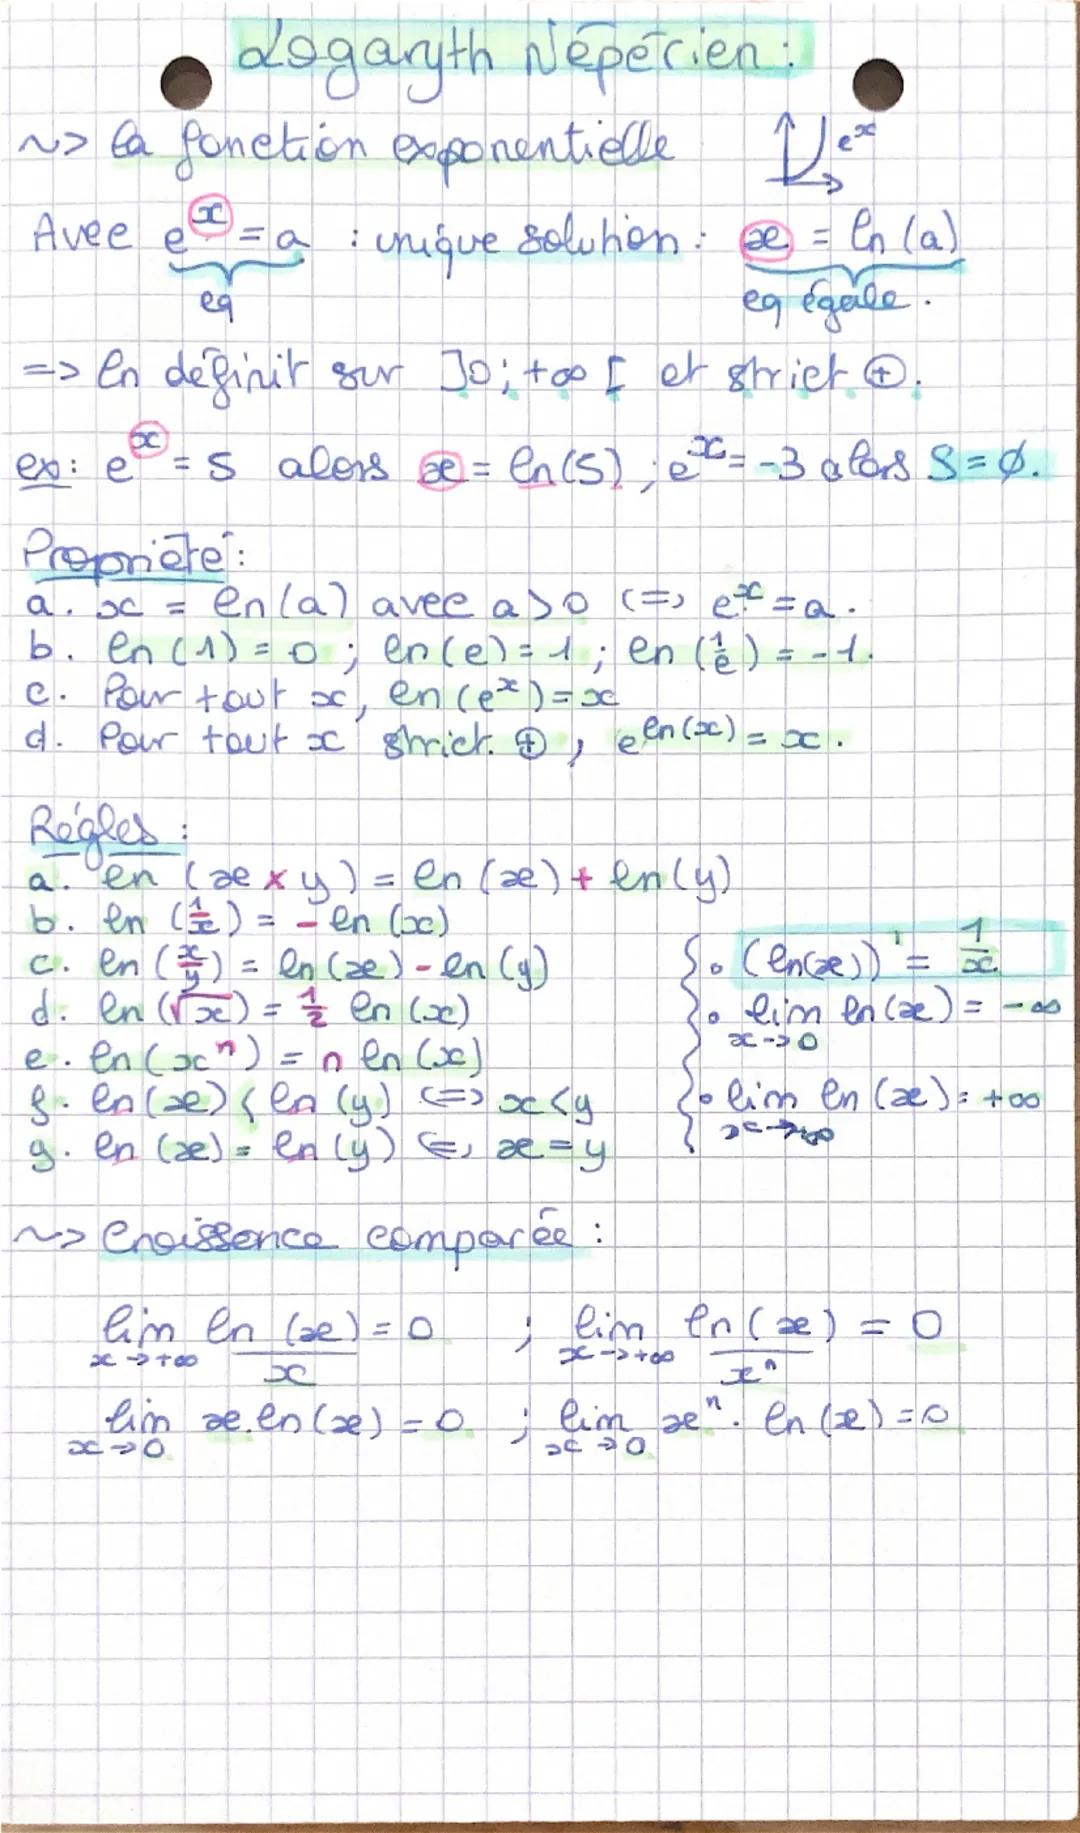 Logaryth Népérien :
~> la fonction exponentielle
e^x
Avec e^x = a : unique solution : x = ln (a)
eq eq égale.
=> ln définit sur ]0; +∞ [ et strict ⊕.
ex: e^x = 5 alors x = ln(5) ; e^x = -3 alors S = ∅.
Propriété :
a. x = ln(a) avec a > 0 <=> e^x = a.
b. ln (1) = 0 ; ln(e) = 1 ; ln (1/e) = -1.
c. Pour tout x, ln (e^x) = x
d. Pour tout x strict. ⊕, e^ln(x) = x.
Règles :
a. ln (x × y) = ln (x) + ln(y)
b. ln (1/x) = - ln (x)
c. ln (x/y) = ln (x) - ln (y)
d. ln (√x) = 1/2 ln (x)
e. ln (x^n) = n ln (x)
f. ln (x) < ln (y) <=> x < y
g. ln (x) = ln (y) <=> x = y
{ • (ln(x))' = 1/x
• lim ln (x) = -∞
x -> 0
• lim ln (x) = +∞
x -> +∞
~> Croissence comparée :
lim ln (x)/x = 0 ; lim ln (x)/x^n = 0
x -> +∞ x -> +∞
lim x.ln (x) = 0 ; lim x^n . ln (x) = 0
x -> 0 x -> 0